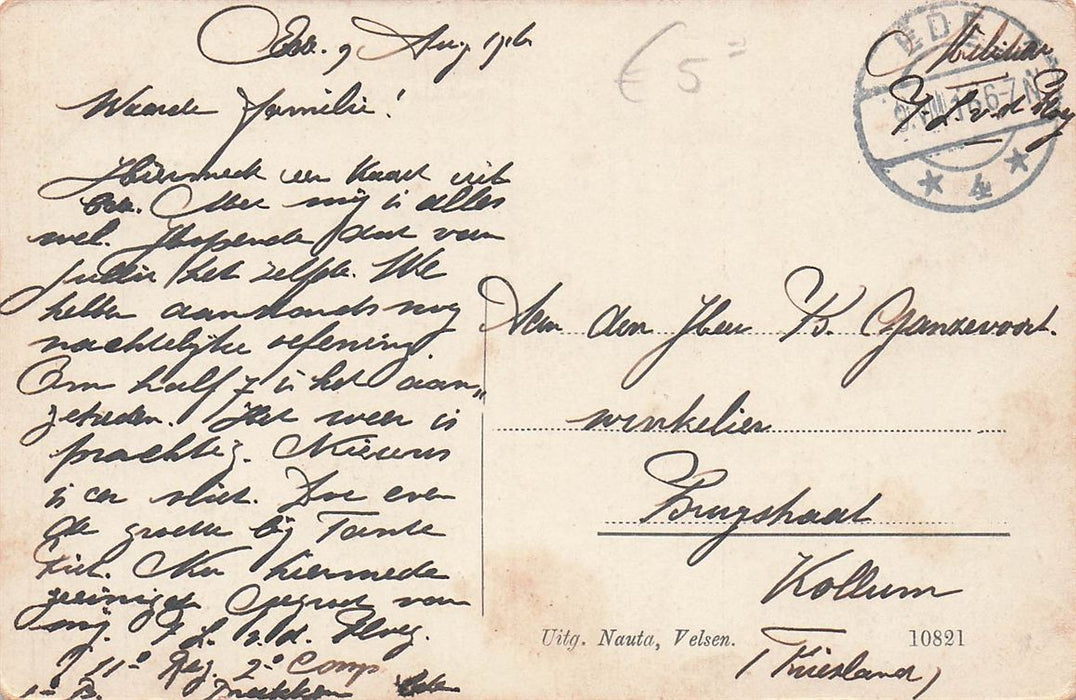 Ede. 9 Aug 1916
Waarde familie!
Hiermede een kaart uit
Ede. Met mij is alles
wel. Hopende dat van
jullie het zelfde. We
hebben aanstonds nog
nachtelijke oefening.
Om half 7 is het aan„
getreden. Het weer is
prachtig. Nieuws
is er niet. Doe even
de groete bij Tante
Nu hiermede
geeindigd Gegroet van
mij. v. d. Ploeg.
11e Reg 2e Comp
1e B. Ede
€ 5=
Militair
v. d. Ploeg
EDE
9.VIII.16 6-7 N
4
Aan den Heer K. Ganzevoort.
winkelier
Brugstraat
Kollum
(Friesland)
Uitg. Nauta, Velsen. 10821